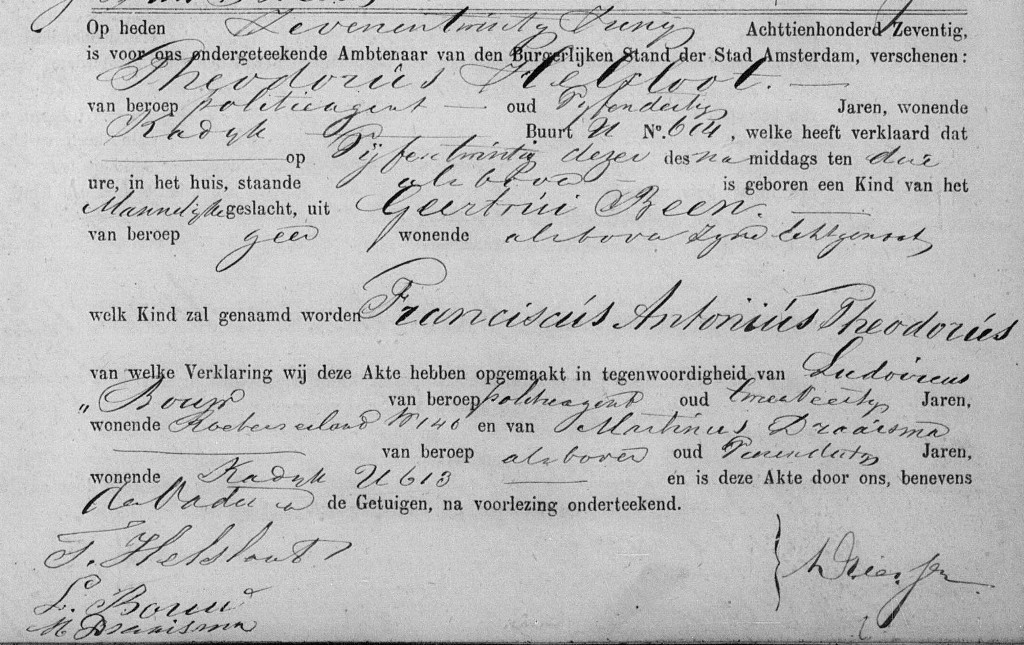 Op heden Zevenentwintig Juny Achttienhonderd Zeventig,
is voor ons ondergeteekende Ambtenaar van den Burgerlijken Stand der Stad Amsterdam, verschenen:
Theodorus Helsloot. —
van beroep politieagent — oud Vyfendertig Jaren, wonende
Kadyk — Buurt U No. 614, welke heeft verklaard dat
— op Vijfentwintig dezer des na middags ten drie
ure, in het huis, staande als boven — is geboren een Kind van het
Mannelijke geslacht, uit Geertrui Been. —
van beroep geen wonende alsboven Zyne Echtgenoot
welk Kind zal genaamd worden Franciscus Antonius Theodorus
van welke Verklaring wij deze Akte hebben opgemaakt in tegenwoordigheid van Ludovicus
„ Bouw van beroep politieagent oud tweeveertig Jaren,
wonende No 140 en van Martinus Draaisma
— van beroep alsboven oud Jaren,
wonende Kadyk U 613 — en is deze Akte door ons, benevens
de Vader en de Getuigen, na voorlezing onderteekend.
T. Helsloot
L. Bouw
M Draaisma